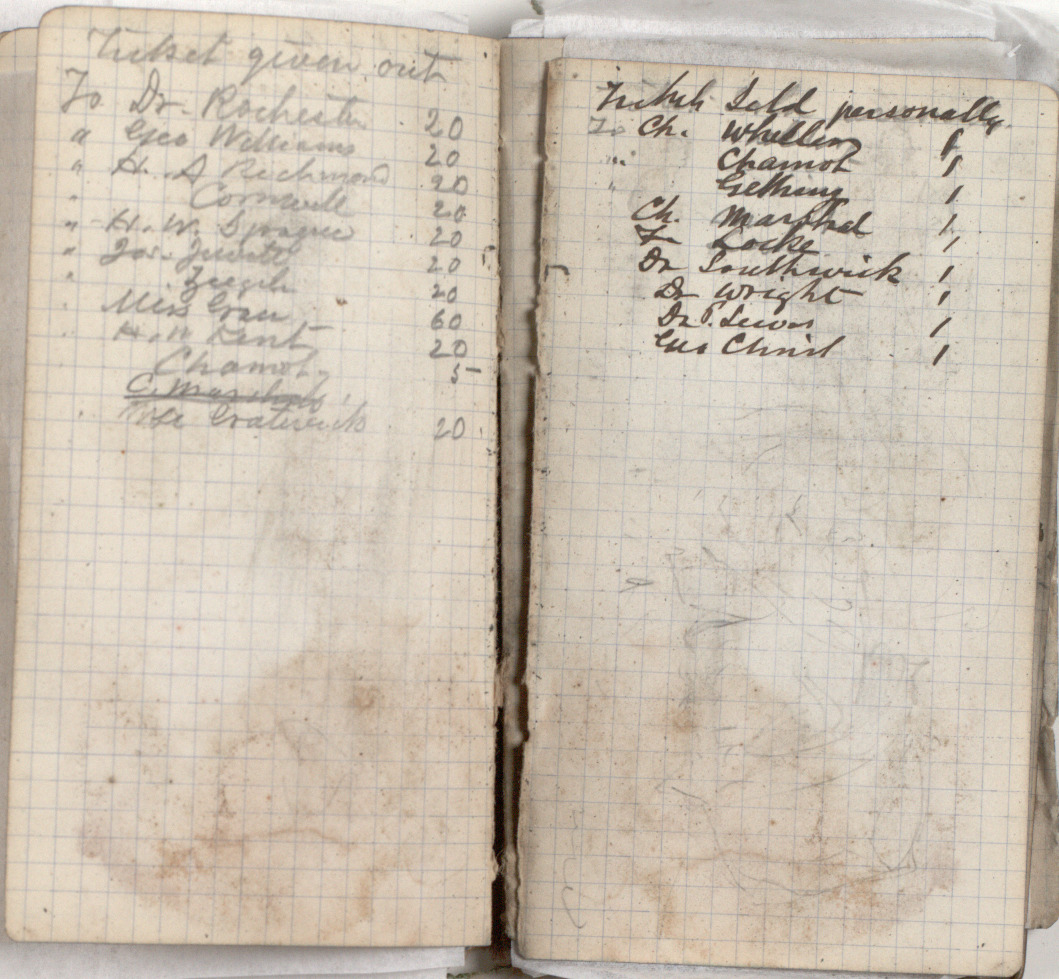 Ticket given out
To Dr. Rochester 20
" Geo Williams 20
" H. A Richmond 20
" Cornwell 20
" H. W. Sprague 20
" Jos. Jewett 20
" 20
" Miss Grau 60
" H. W Kent 20
Chamot 5
C. Marshal
Mr Cratwick 20
Tickets Sold personally
To Ch. 1
" Chamot 1
" Gethin 1
Ch. Marshal 1
F Locke 1
Dr Southwick 1
Dr Wright 1
Dr 1
1